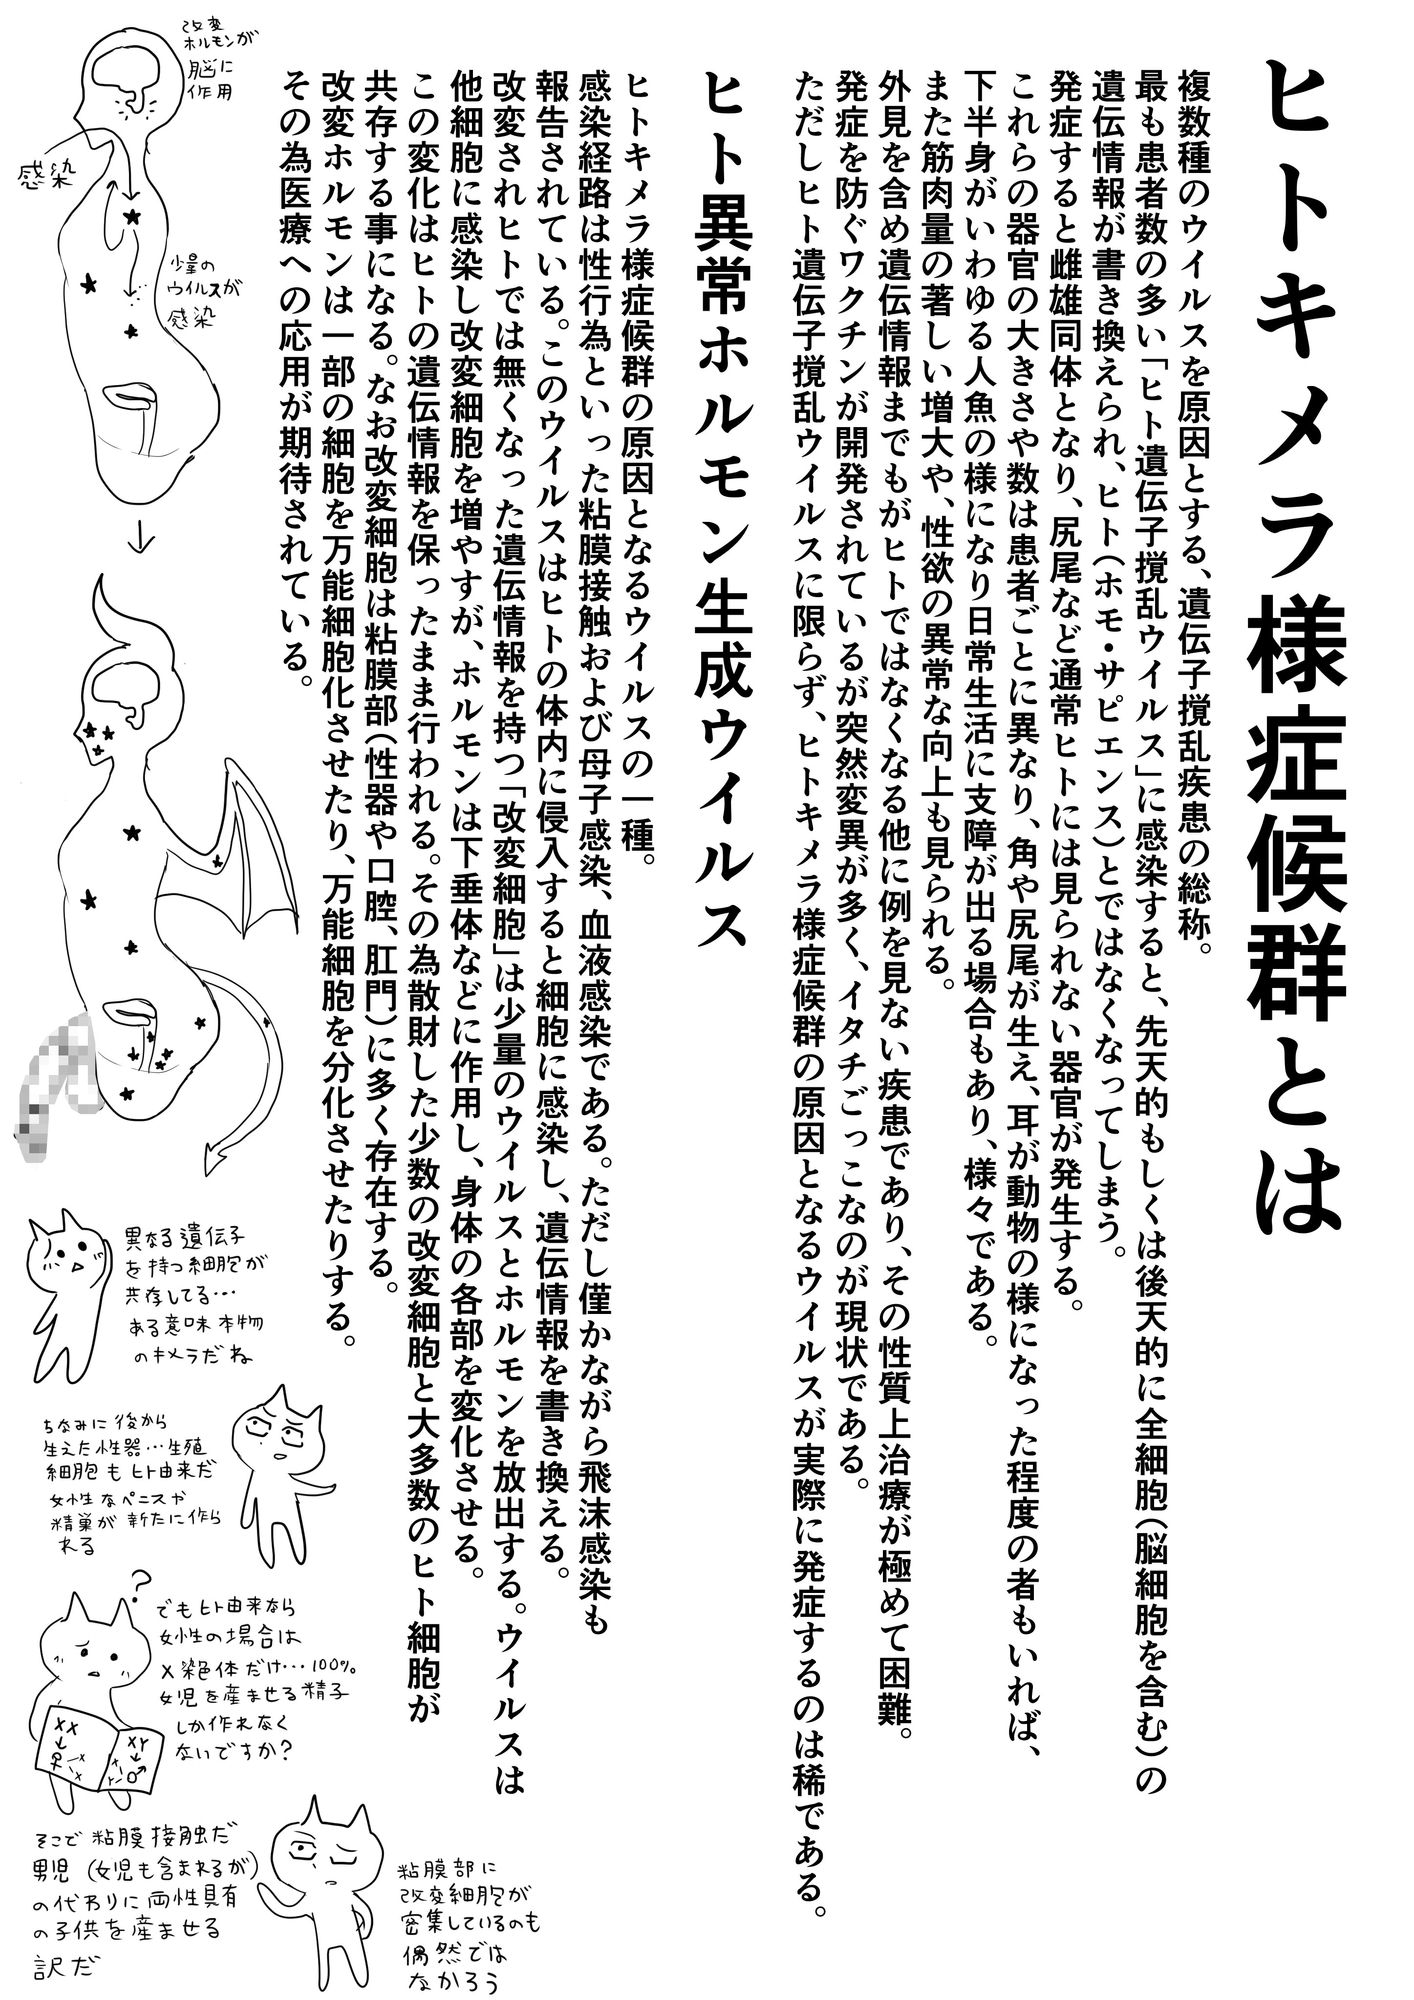 ヒトキメラ様症候群とは
複数種のウイルスを原因とする、遺伝子撹乱疾患の総称。
最も患者数の多い「ヒト遺伝子撹乱ウイルス」に感染すると、先天的もしくは後天的に全細胞(脳細胞を含む)の
遺伝情報が書き換えられ、ヒト(ホモ・サピエンス)とではなくなってしまう。
発症すると雌雄同体となり、尻尾など通常ヒトには見られない器官が発生する。
これらの器官の大きさや数は患者ごとに異なり、角や尻尾が生え、耳が動物の様になった程度の者もいれば、
下半身がいわゆる人魚の様になり日常生活に支障が出る場合もあり、様々である。
また筋肉量の著しい増大や、性欲の異常な向上も見られる。
外見を含め遺伝情報までもがヒトではなくなる他に例を見ない疾患であり、その性質上治療が極めて困難。
発症を防ぐワクチンが開発されているが突然変異が多く、イタチごっこなのが現状である。
ただしヒト遺伝子撹乱ウイルスに限らず、ヒトキメラ様症候群の原因となるウイルスが実際に発症するのは稀である。
ヒト異常ホルモン生成ウイルス
ヒトキメラ様症候群の原因となるウイルスの一種。
感染経路は性行為といった粘膜接触および母子感染、血液感染である。ただし僅かながら飛沫感染も
報告されている。このウイルスはヒトの体内に侵入すると細胞に感染し、遺伝情報を書き換える。
改変されヒトでは無くなった遺伝情報を持つ「改変細胞」は少量のウイルスとホルモンを放出する。ウイルスは
他細胞に感染し改変細胞を増やすが、ホルモンは下垂体などに作用し、身体の各部を変化させる。
この変化はヒトの遺伝情報を保ったまま行われる。その為散財した少数の改変細胞と大多数のヒト細胞が
共存する事になる。なお改変細胞は粘膜部(性器や口腔、肛門)に多く存在する。
改変ホルモンは一部の細胞を万能細胞化させたり、万能細胞を分化させたりする。
その為医療への応用が期待されている。
改変
ホルモンが
脳に
作用
感染
少量の
ウイルスが
感染
異なる遺伝子
を持つ細胞が
共存してる…
ある意味本物
のキメラだね
ちなみに後から
生えた性器…生殖
細胞もヒト由来だ
女性なペニスか
精巣が新たに作ら
れる
?
でもヒト由来なら
女性の場合は
X染色体だけ…100%
女児を産ませる精子
しか作れなく
ないですか?
XX
↓
♀
X
X
XY
↓
♂
X
Y
粘膜部に
改変細胞が
密集しているのも
偶然では
なかろう
そこで粘膜接触だ
男児(女児も含まれるが)
の代わりに両性具有
の子供を産ませる
訳だ